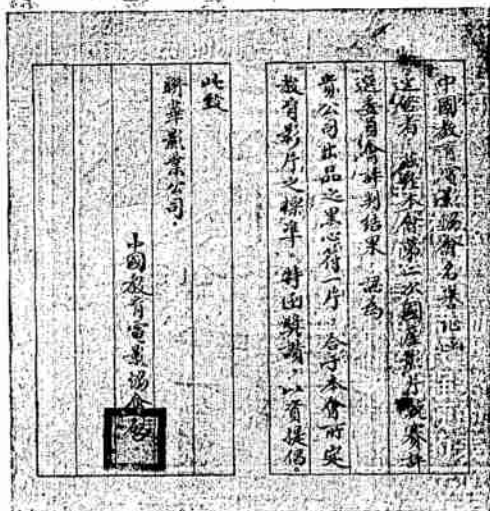 中國教育電影協會名譽証函
逕啓者 茲經本會第二次國產影片競賽評
選委員會評判結果 認為
貴公司出品之黑心符一片，合于本會所定
教育影片之標準，特函獎讚，以資提倡。
此致
聯華影業公司。
中國教育電影協會啟